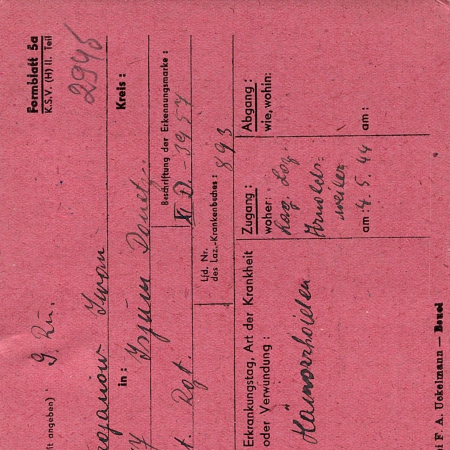 Formblatt 5a
K.S.V. (H) II. Teil
2946
t angeben) : g. Ru.
Iwan
Kreis :
in : Isjum Donetz
Beschriftung der Erkennungsmarke :
XI D - 3957
t. Rgt.
Lfd. Nr.
des Laz.-Krankenbuches : 893
Erkrankungstag, Art der Krankheit
oder Verwundung :
Hämorrhoiden
Zugang :
woher:
Lag. Laz.
Arnolds-
weiler
am : 4. 5. 44
Abgang :
wie, wohin:
am :
i F. A. Uckelmann — Beuel